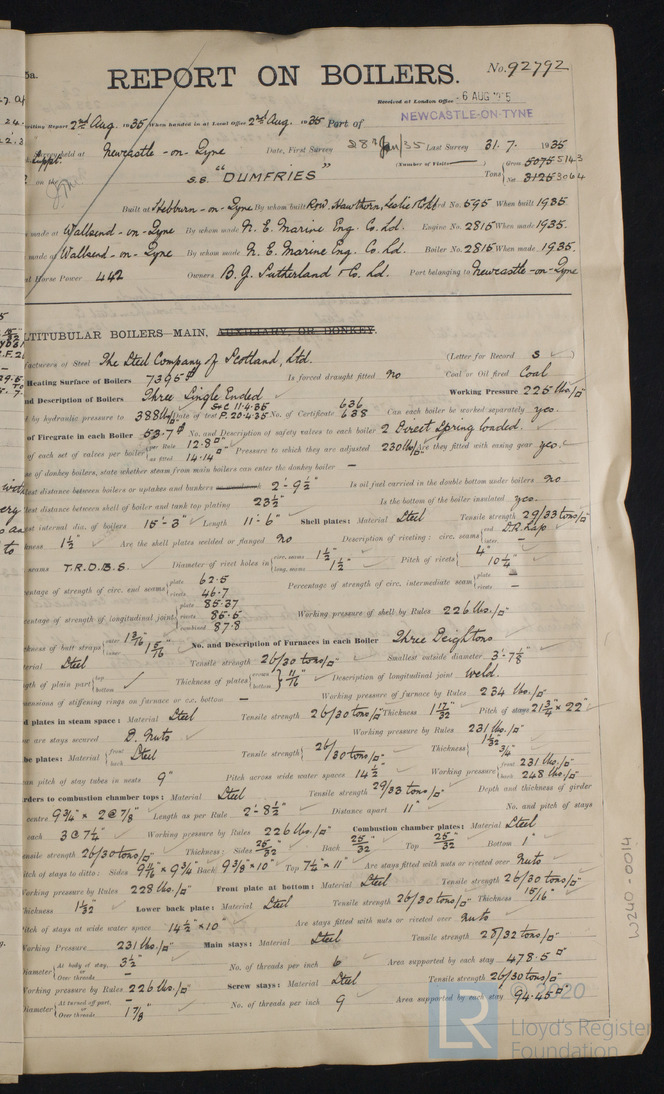 5a.
REPORT ON BOILERS.
No. 92792
Received at London Office 6 AUG
NEWCASTLE-ON-TYNE
iting Report 2nd Aug. 1935 When handed in at Local Office 2nd Aug. 1935 Port of
held at Newcastle-on-Tyne Date, First Survey 28th Jan/35 Last Survey 31.7. 1935
(Number of Visits
on the s.s. "DUMFRIES" Tons Gross 5075 5143
Net 3125 3064
Built at Hebburn-on-Tyne By whom built R. W. Hawthorn, Leslie & Co Ld Yard No. 595 When built 1935
made at Wallsend-on-Tyne By whom made N. E. Marine Eng. Co. Ld. Engine No. 2815 When made 1935.
made at Wallsend-on-Tyne By whom made N. E. Marine Eng. Co. Ld. Boiler No. 2815 When made 1935.
l Horse Power 442 Owners B. J. Sutherland & Co. Ld. Port belonging to Newcastle-on-Tyne
LTITUBULAR BOILERS—MAIN, AUXILIARY, OR DONKEY.
facturers of Steel The Steel Company of Scotland, Ltd. (Letter for Record S )
Heating Surface of Boilers 7395 Is forced draught fitted no Coal or Oil fired Coal
nd Description of Boilers Three Single Ended Working Pressure 225 lbs/□"
S+C 11.4.35 636
d by hydraulic pressure to 388 lbs/□" Date of test P. 20.4.35 No. of Certificate 638 Can each boiler be worked separately yes.
of Firegrate in each Boiler 53.7 No. and Description of safety valves to each boiler 2 Direct Spring loaded.
of each set of valves per boiler per Rule 12.8□" as fitted 14.14□" Pressure to which they are adjusted 230 lbs/□" Are they fitted with easing gear yes.
se of donkey boilers, state whether steam from main boilers can enter the donkey boiler —
est distance between boilers or uptakes and bunkers 2'-9½" Is oil fuel carried in the double bottom under boilers no
est distance between shell of boiler and tank top plating 23½" Is the bottom of the boiler insulated yes.
est internal dia. of boilers 15'-3" Length 11'-6" Shell plates: Material Steel Tensile strength 29/33 tons/□"
kness 1½" Are the shell plates welded or flanged no Description of riveting: circ. seams end D.R. Lap inter. —
seams T.R.D.B.S. Diameter of rivet holes in circ. seams 1½" long. seams 1½" Pitch of rivets 4" 10¼"
entage of strength of circ. end seams plate 62.5 rivets 46.7 Percentage of strength of circ. intermediate seam plate — rivets —
entage of strength of longitudinal joint plate 85.37 rivets 85.5 combined 87.8 Working pressure of shell by Rules 226 lbs./□"
ckness of butt straps outer 1 3/16" inner 1 5/16" No. and Description of Furnaces in each Boiler Three Deightons
erial Steel Tensile strength 26/30 tons/□" Smallest outside diameter 3'-7⅛"
gth of plain part top bottom Thickness of plates crown bottom 11/16" Description of longitudinal joint weld.
ensions of stiffening rings on furnace or c.c. bottom — Working pressure of furnace by Rules 234 lbs./□"
d plates in steam space: Material Steel Tensile strength 26/30 tons/□" Thickness 1 17/32 Pitch of stays 21¾" × 22"
w are stays secured D. Nuts Working pressure by Rules 231 lbs./□"
be plates: Material front back Steel Tensile strength 26/30 tons/□" Thickness 1 1/32" ¾"
an pitch of stay tubes in nests 9" Pitch across wide water spaces 14½" Working pressure front 231 lbs./□" back 248 lbs./□"
rders to combustion chamber tops: Material Steel Tensile strength 29/33 tons/□" Depth and thickness of girder
centre 9¾" × 2@⅞" Length as per Rule 2'-8½" Distance apart 11" No. and pitch of stays
each 3@7¼" Working pressure by Rules 226 lbs./□" Combustion chamber plates: Material Steel
ensile strength 26/30 tons/□" Thickness: Sides 25/32" Back 25/32" Top 25/32" Bottom 1"
itch of stays to ditto: Sides 9 11/16" × 9¾" Back 9⅜" × 10" Top 7¼" × 11" Are stays fitted with nuts or riveted over Nuts
Working pressure by Rules 228 lbs./□" Front plate at bottom: Material Steel Tensile strength 26/30 tons/□"
hickness 1 1/32 Lower back plate: Material Steel Tensile strength 26/30 tons/□" Thickness 15/16"
Pitch of stays at wide water space 14½" × 10" Are stays fitted with nuts or riveted over Nuts
Working Pressure 231 lbs./□" Main stays: Material Steel Tensile strength 28/32 tons/□"
Diameter At body of stay, 3½" Over threads — No. of threads per inch 6 Area supported by each stay 478.5□"
Working pressure by Rules 226 lbs./□" Screw stays: Material Steel Tensile strength 26/30 tons/□"
Diameter At turned off part, — Over threads 1⅞" No. of threads per inch 9 Area supported by each stay 94.45□"
W240-0014
LR
© 2020
Lloyd's Register
Foundation